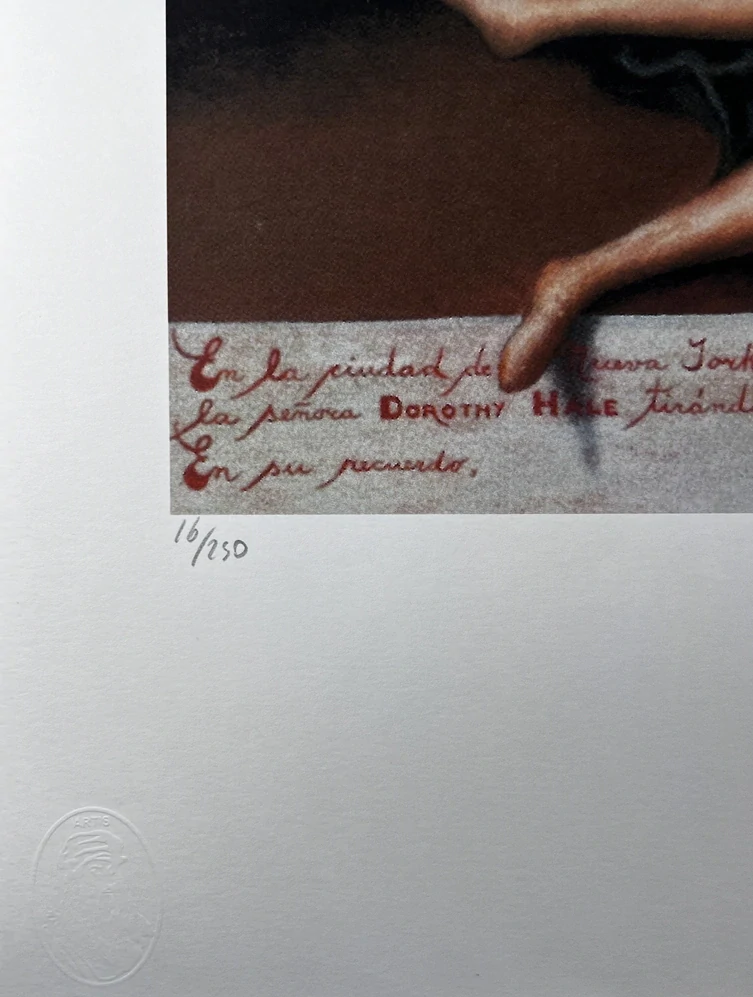 En la ciudad de Nueva York
la señora DOROTHY HALE tiránd
En su recuerdo,
16/250
ARTS